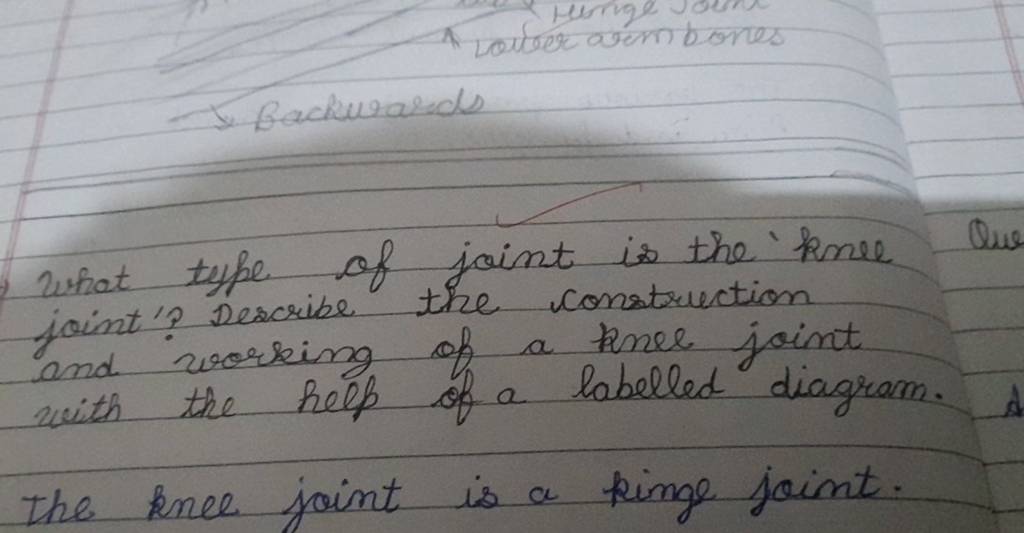 Hinge Joint
Lower arm bones
Backwards
What type of joint is the 'knee
joint'? Describe the construction
and working of a knee joint
with the help of a labelled diagram.
The knee joint is a hinge joint.
Que
A